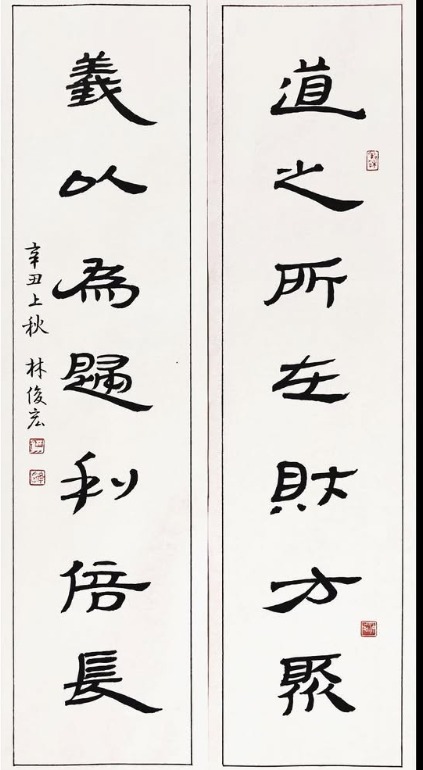 道之所在財方聚
義以為歸利倍長
辛丑上秋 林俊宏